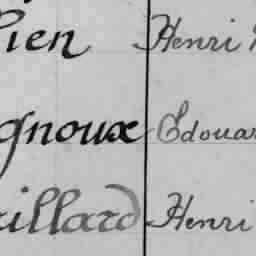 ien Henri
gnoux Edouar
illard Henri